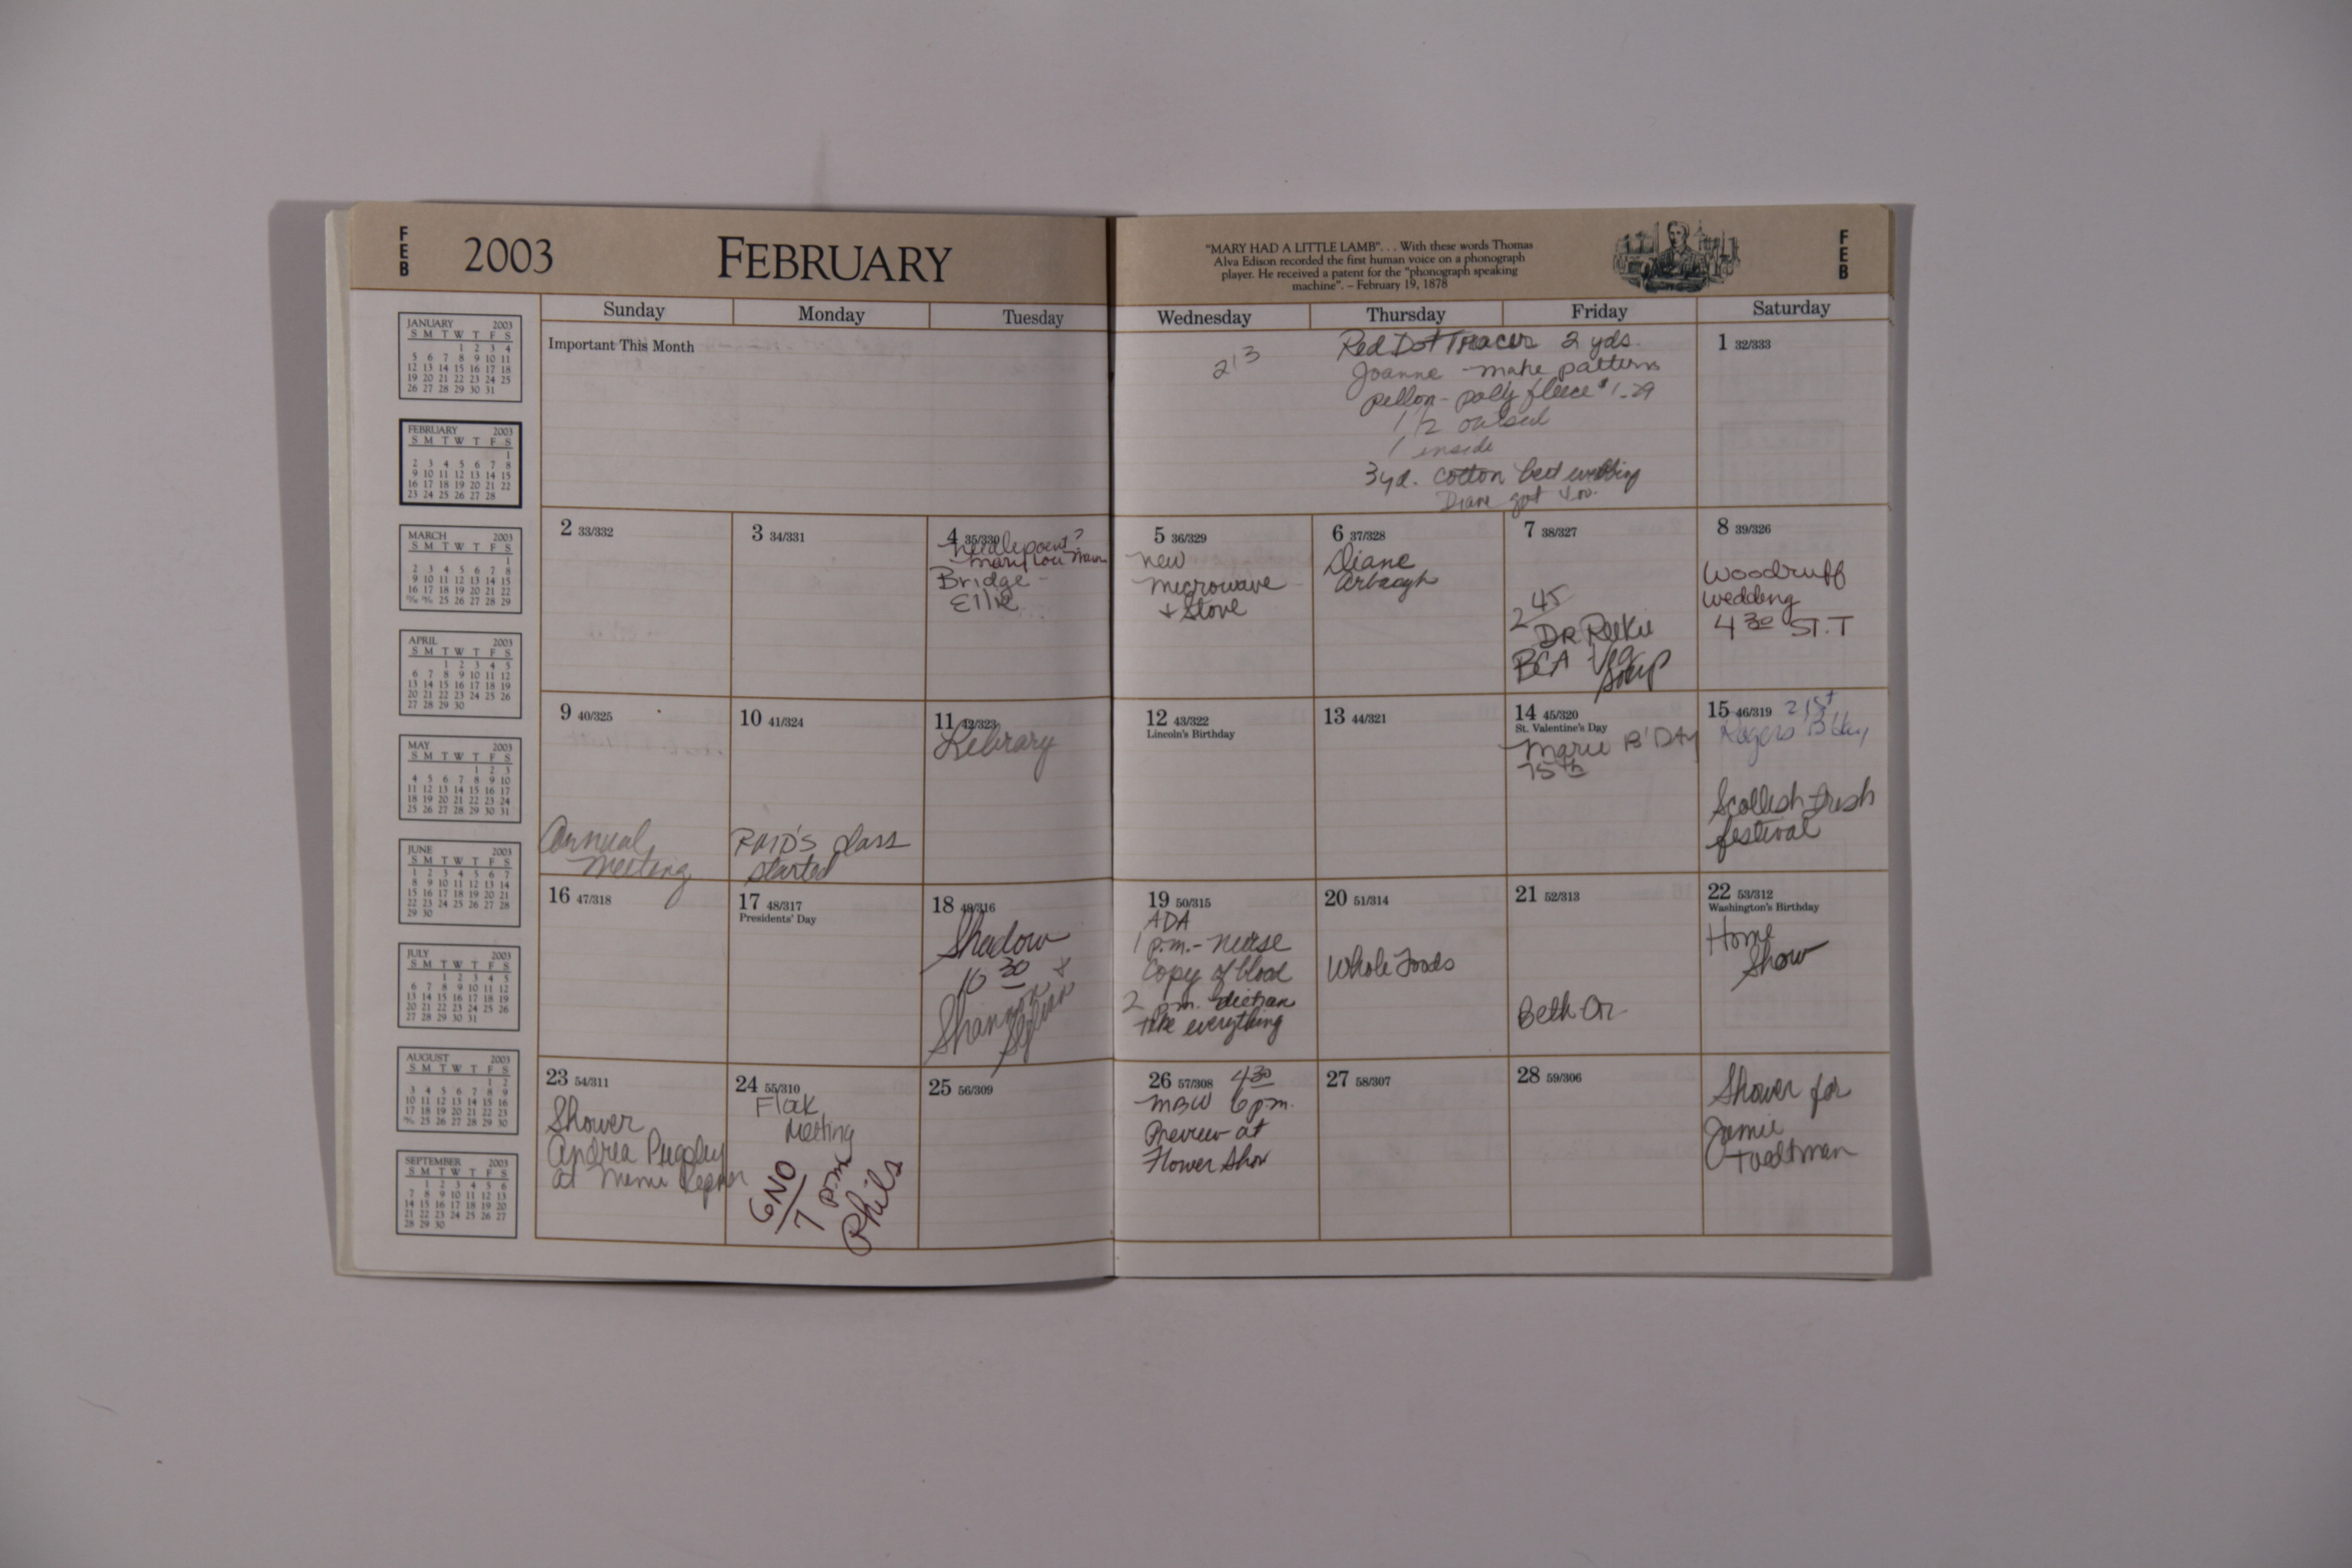 FEB
2003
FEBRUARY
"MARY HAD A LITTLE LAMB". . . With these words Thomas
Alva Edison recorded the first human voice on a phonograph
player. He received a patent for the "phonograph speaking
machine". – February 19, 1878
FEB
Sunday
Monday
Tuesday
Wednesday
Thursday
Friday
Saturday
JANUARY 2003
S M T W T F S
1 2 3 4
5 6 7 8 9 10 11
12 13 14 15 16 17 18
19 20 21 22 23 24 25
26 27 28 29 30 31
FEBRUARY 2003
S M T W T F S
1
2 3 4 5 6 7 8
9 10 11 12 13 14 15
16 17 18 19 20 21 22
23 24 25 26 27 28
MARCH 2003
S M T W T F S
1
2 3 4 5 6 7 8
9 10 11 12 13 14 15
16 17 18 19 20 21 22
25 26 27 28 29
APRIL 2003
S M T W T F S
1 2 3 4 5
6 7 8 9 10 11 12
13 14 15 16 17 18 19
20 21 22 23 24 25 26
27 28 29 30
MAY 2003
S M T W T F S
1 2 3
4 5 6 7 8 9 10
11 12 13 14 15 16 17
18 19 20 21 22 23 24
25 26 27 28 29 30 31
JUNE 2003
S M T W T F S
1 2 3 4 5 6 7
8 9 10 11 12 13 14
15 16 17 18 19 20 21
22 23 24 25 26 27 28
29 30
JULY 2003
S M T W T F S
1 2 3 4 5
6 7 8 9 10 11 12
13 14 15 16 17 18 19
20 21 22 23 24 25 26
27 28 29 30 31
AUGUST 2003
S M T W T F S
1 2
3 4 5 6 7 8 9
10 11 12 13 14 15 16
17 18 19 20 21 22 23
25 26 27 28 29 30
SEPTEMBER 2003
S M T W T F S
1 2 3 4 5 6
7 8 9 10 11 12 13
14 15 16 17 18 19 20
21 22 23 24 25 26 27
28 29 30
Important This Month
213
Red Dot Tracer 2 yds.
Joanne - make patterns
pellon - poly fleece $1.29
1 1/2
1 inside
3 yd. cotton belt webbing
Diane got
1 32/333
2 33/332
3 34/331
4 35/330
needlepoint?
Mary Lou
Bridge -
Ellie
5 36/329
new
microwave
+ Stove
6 37/328
Diane
Arbaugh
7 38/327
2 45
DR
BCA Veg
Soup
8 39/326
Woodruff
wedding
4 30 ST. T
9 40/325
Annual
Meeting
10 41/324
class
started
11 42/323
Library
12 43/322
Lincoln's Birthday
13 44/321
14 45/320
St. Valentine's Day
Marie B'DAY
75th
15 46/319 21st
Rogers B'day
Scottish Irish
festival
16 47/318
17 48/317
Presidents' Day
18 49/316
Shadow
10 30 &
Shannon
19 50/315
ADA
1 p.m. - nurse
Copy of blood
2 p.m. dietian
take everything
20 51/314
Whole Foods
21 52/313
Beth Or
22 53/312
Washington's Birthday
Home
Show
23 54/311
Shower
Andrea Pugsley
at Mimi
24 55/310
Flok
Meeting
GNO
7 p.m
Phils
25 56/309
26 57/308 4 30
MBW 6 p.m.
Preview at
Flower Show
27 58/307
28 59/306
Shower for
Jamie